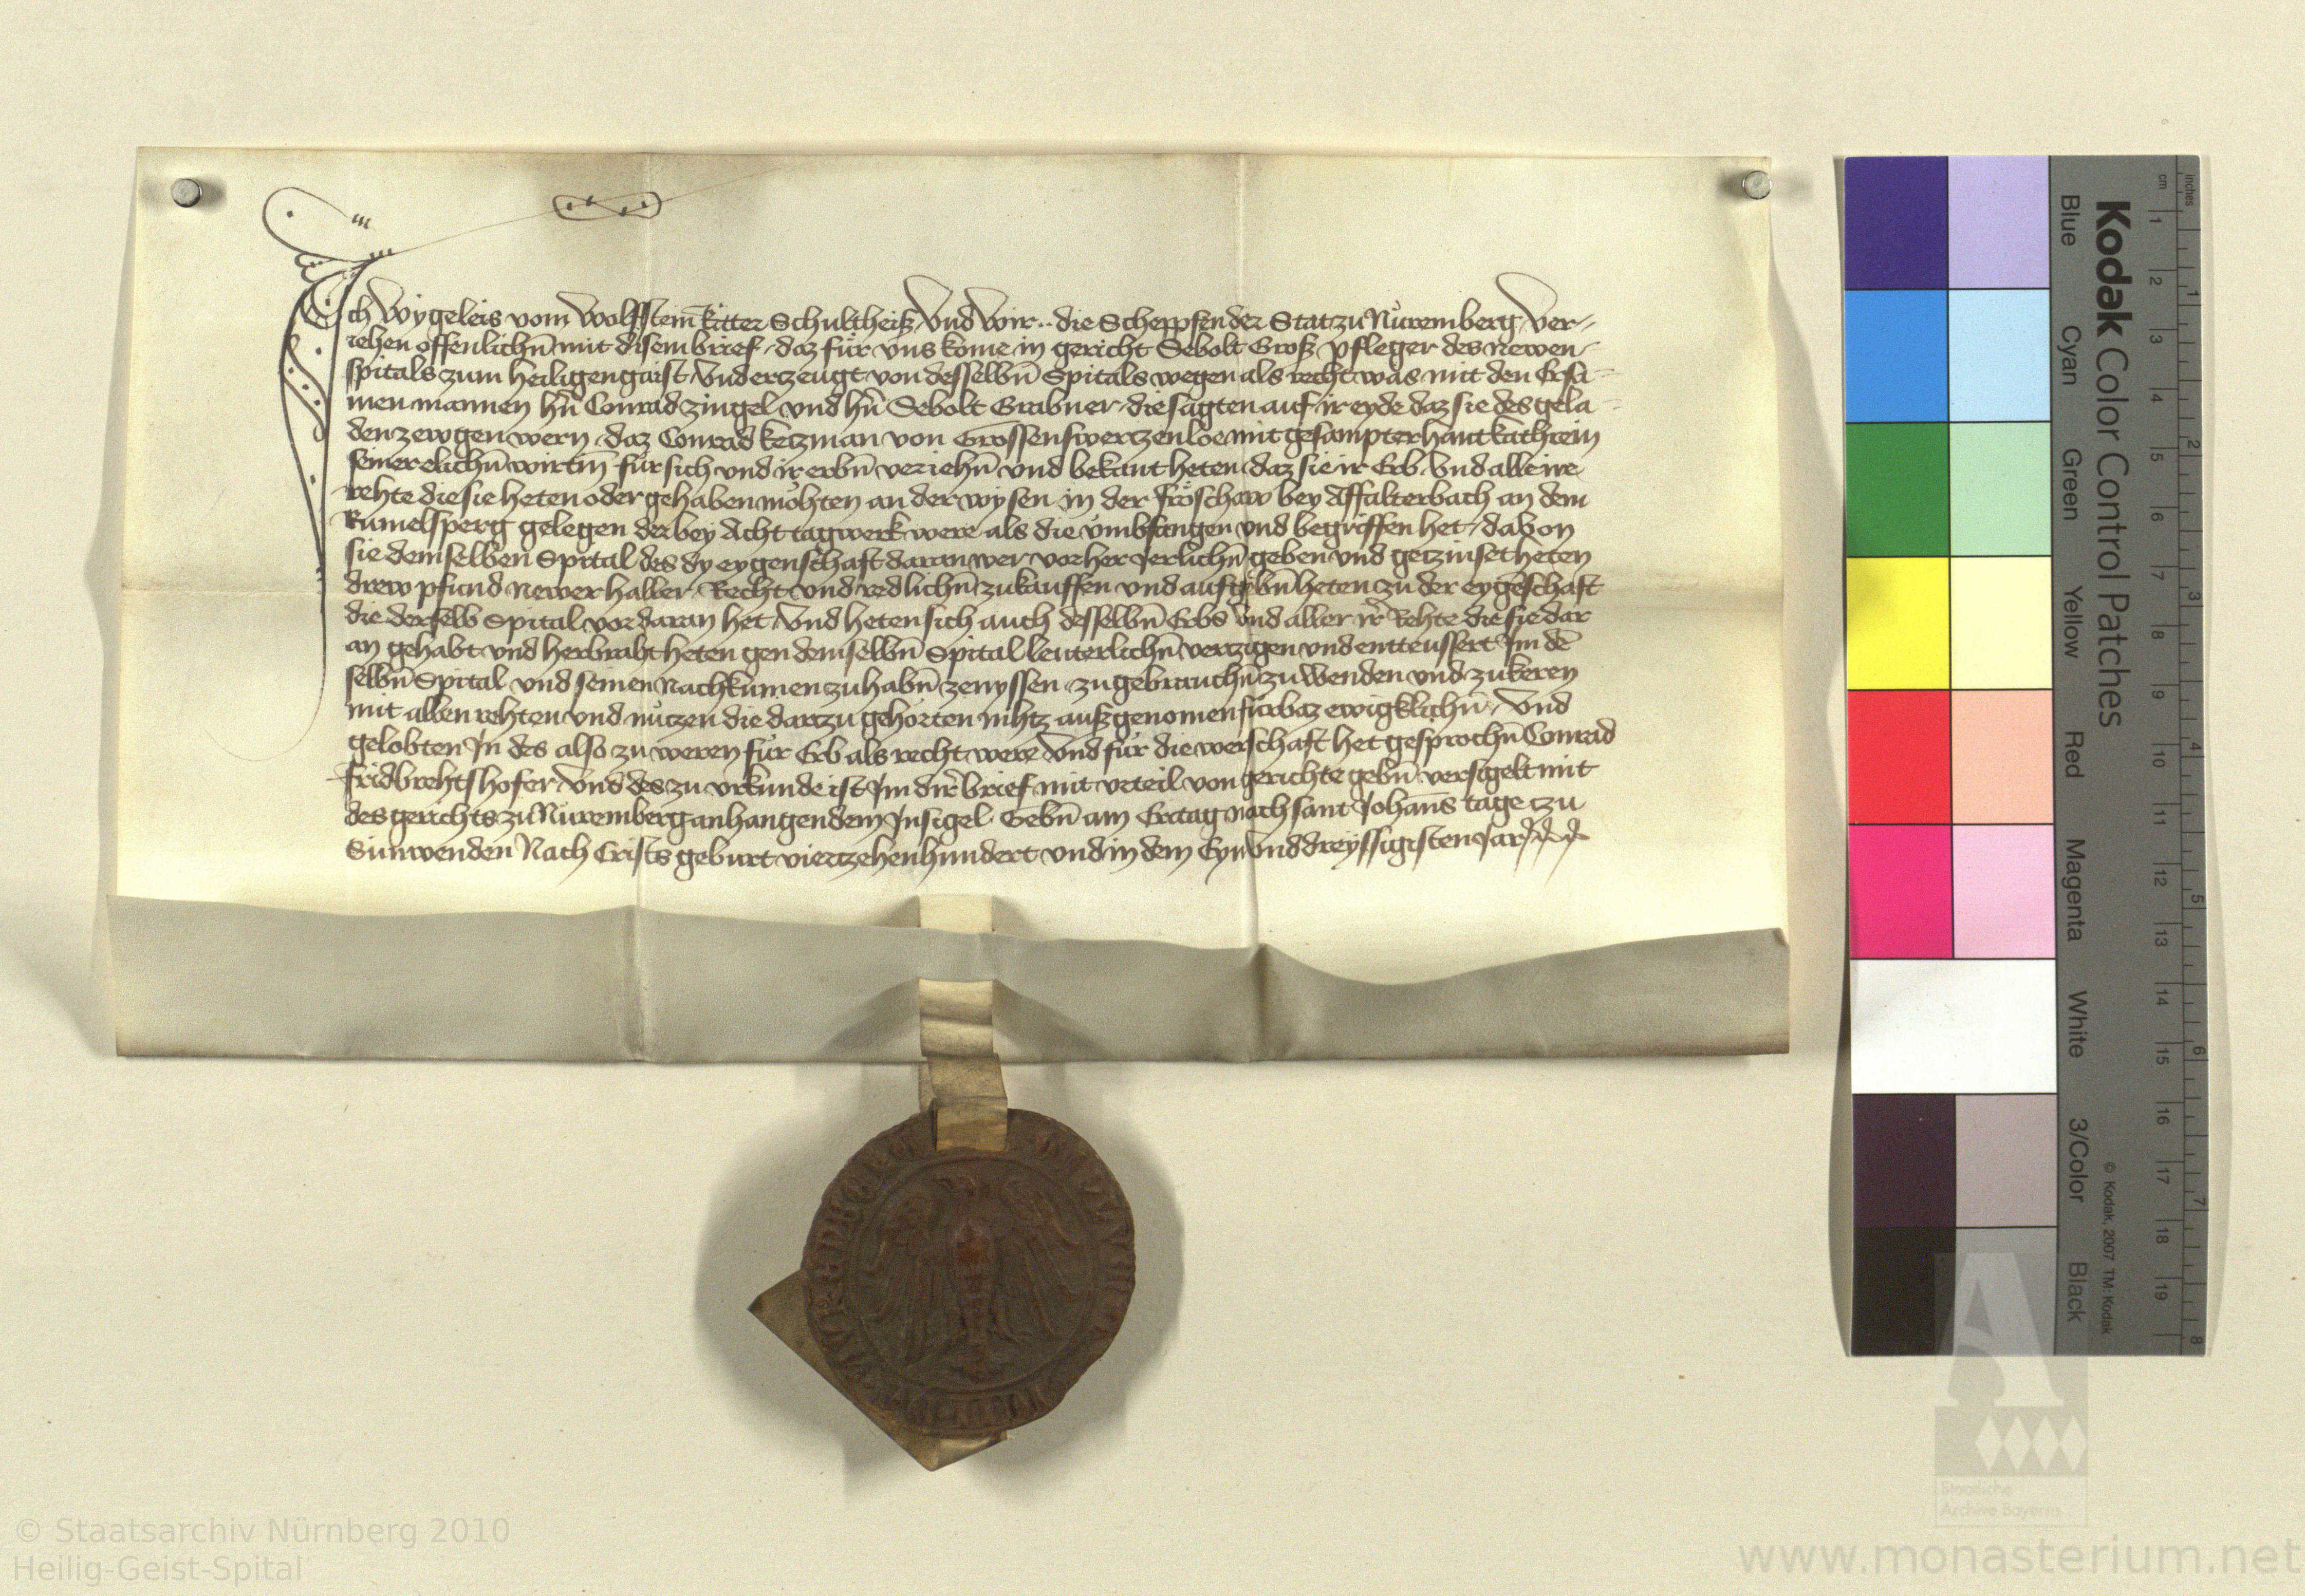 Ich Wygeleis vom Wolfstein Ritter Schultheiß Vnd Wir .. die Scheppfen der Stat zu Nůremberg Ver-
iehen offenlichn̄ mit disem brief daz für vns kome in gericht Sebolt Groß pfleger des Newen
spitals zum heiligen gaist Vnd erzeugt von desselbn̄ Spitals wegen als recht was mit den Ersa-
men mannen hn̄ Conrad Zingel vnd hn̄ Sebolt Grabner die sagten auf ir eyde daz sie des gela-
den zewgen wern daz Conrad ketzman von Grossenswertzenloe mit gesampter hant kathrein
seiner elichn̄ wirtin̄ für sich vnd ir erbn̄ veriehn̄ vnd bekant heten daz sie ir Erb Vnd alle ire
rehte die sie heten oder gehaben mohten an der wysen in der fröschaw bey Affalterbach an dem
Rumelsperg gelegen der bey Acht tagwerk were als die vmbfangen vnd begriffen het dauon
sie demselben Spital des dy eygenschaft daran wer vorher Jerlichn̄ geben vnd getzinset heten
drew pfund newer haller Recht vnd redlichn̄ zukauffen vnd aufgebn̄ heten zu der eygēschaft
die derselb Spital vor daran het Vnd heten sich auch desselbn̄ Erbs vnd aller ir̄ Rehte die sie dar
an gehabt vnd herbraht heten gen demselbn̄ Spital leuterlichn̄ vertzigen vnd entteussert Im dē
selbn̄ Spital vnd seinen Nachkumen zuhabn̄ zenyssen zugebrauchn̄ zu Wenden vnd zukeren
mit allen rehten vnd nůtzen die dartzu gehorten nihtz außgenomen fürbaz ewigklichn̄ Vnd
gelobten In des also zu weren für Erb als recht were Vnd für die werschaft het gesprochn̄ Conrad
fridbrehtshofer Vnd des zu vrkunde ist Im dir̄ brief mit vrteil von gerichte gebn̄ versigelt mit
des gerichts zu Nůremberg anhangendem Insigel Gebn̄ am Eritag nach sant Johanns tage zu
Sunwenden Nach Crists geburt viertzehenhundert vnd in dem Eyn Vnd dreyssigisten Jar
Kodak Color Control Patches
Blue Cyan Green Yellow Red Magenta White 3/Color Black
© Kodak, 2007 TM: Kodak
inches 1 2 3 4 5 6 7 8
cm 1 2 3 4 5 6 7 8 9 10 11 12 13 14 15 16 17 18 19
Staatliche
Archive Bayerns
© Staatsarchiv Nürnberg 2010
Heilig-Geist-Spital
www.monasterium.net